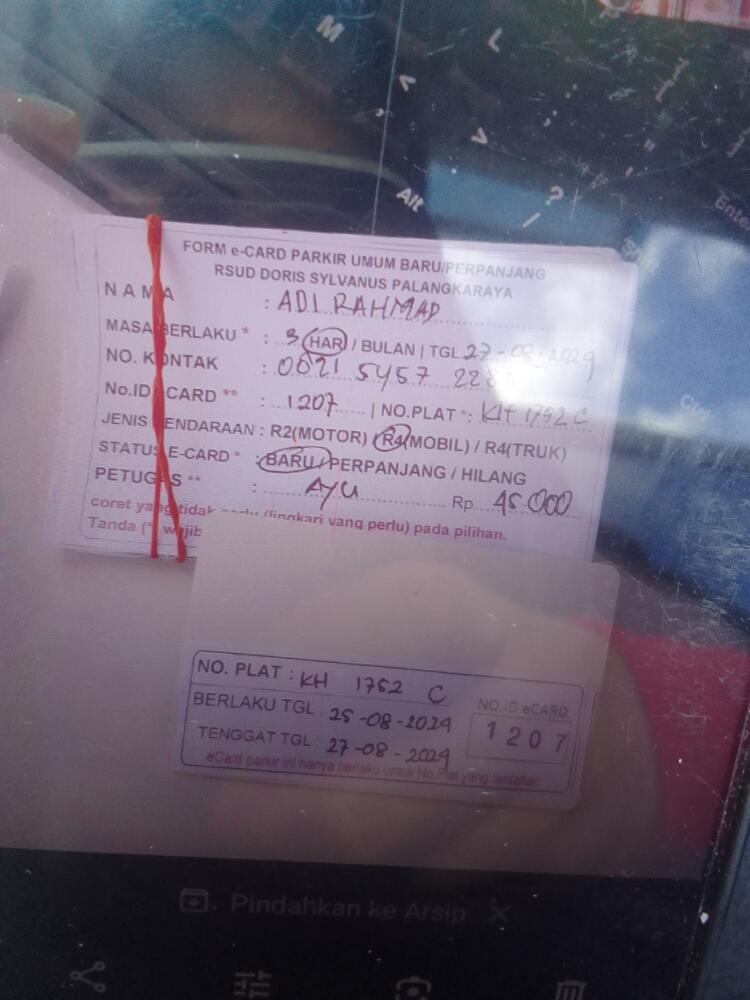 M
L
<
>
?
Alt
/
Enter
Ctrl
FORM e-CARD PARKIR UMUM BARU/PERPANJANG
RSUD DORIS SYLVANUS PALANGKARAYA
NAMA : ADI RAHMAD
MASA BERLAKU * : 3 HARI / BULAN | TGL 27-08-2024
NO. KONTAK : 0821 5457
No.ID CARD ** : 1207 | NO.PLAT *: KH 1752 C
JENIS KENDARAAN : R2(MOTOR) / R4(MOBIL) / R4(TRUK)
STATUS E-CARD * : BARU / PERPANJANG / HILANG
PETUGAS ** : AYU Rp 45.000
coret yang tidak perlu /lingkari yang perlu) pada pilihan.
Tanda (* wajib
NO. PLAT : KH 1752 C
BERLAKU TGL : 25-08-2024
NO.ID eCARD
1207
TENGGAT TGL : 27-08-2024
eCard parkir ini hanya berlaku untuk No.Plat yang tertanda
Pindahkan ke Arsip ×